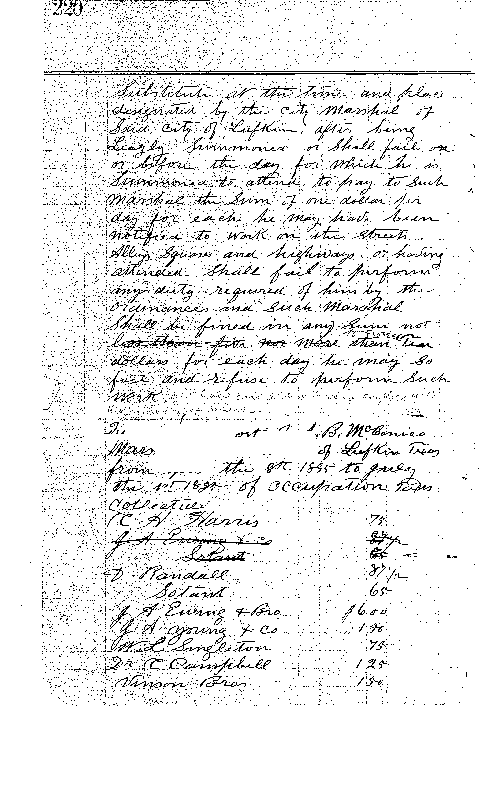 220
Substitute at the time and place
designated by the City Marshal of
Said City of Lufkin after being
Leagly Summoned or Shall fail on
or before the day for which he is
Summoned to attend to pay to Such
Marshal the Sum of one dollar per
day for each he may have been
notified to work on the Streets
Alley Squares and highways or having
attended Shall fail to perform
any duty required of him by the
Ordinances and Such Marshal
Shall be fined in any Sum not
less than five nor more than ten
dollars for each day he may So
fail and refuse to perform Such
work
B. McConico
of Lufkin Texas
from the 8th 1885 to
the 1st of Occupation Taxes
Collected
C H Harris 75
J A Ewing & Co
Sotant 65
D Randall 87 1/2
Sotant 65
J A Ewing & Bro $6.00
J A Young & Co 1 50
W L Singleton 75
Dr C Campbell 1 25
Vinson Bros 1 50